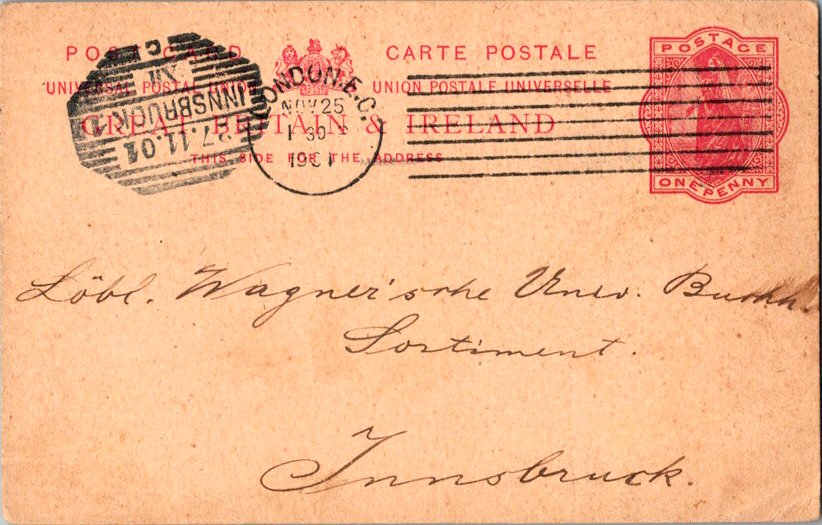 POST CARD CARTE POSTALE
UNIVERSAL POSTAL UNION UNION POSTALE UNIVERSELLE
GREAT BRITAIN & IRELAND
THIS SIDE FOR THE ADDRESS
POSTAGE
ONE PENNY
INNSBRUCK 1
27.11.01
LONDON.E.C.
NOV 25
1 30
1901
Löbl. Wagner'sche Univ. Buchh.
Sortiment.
Innsbruck.